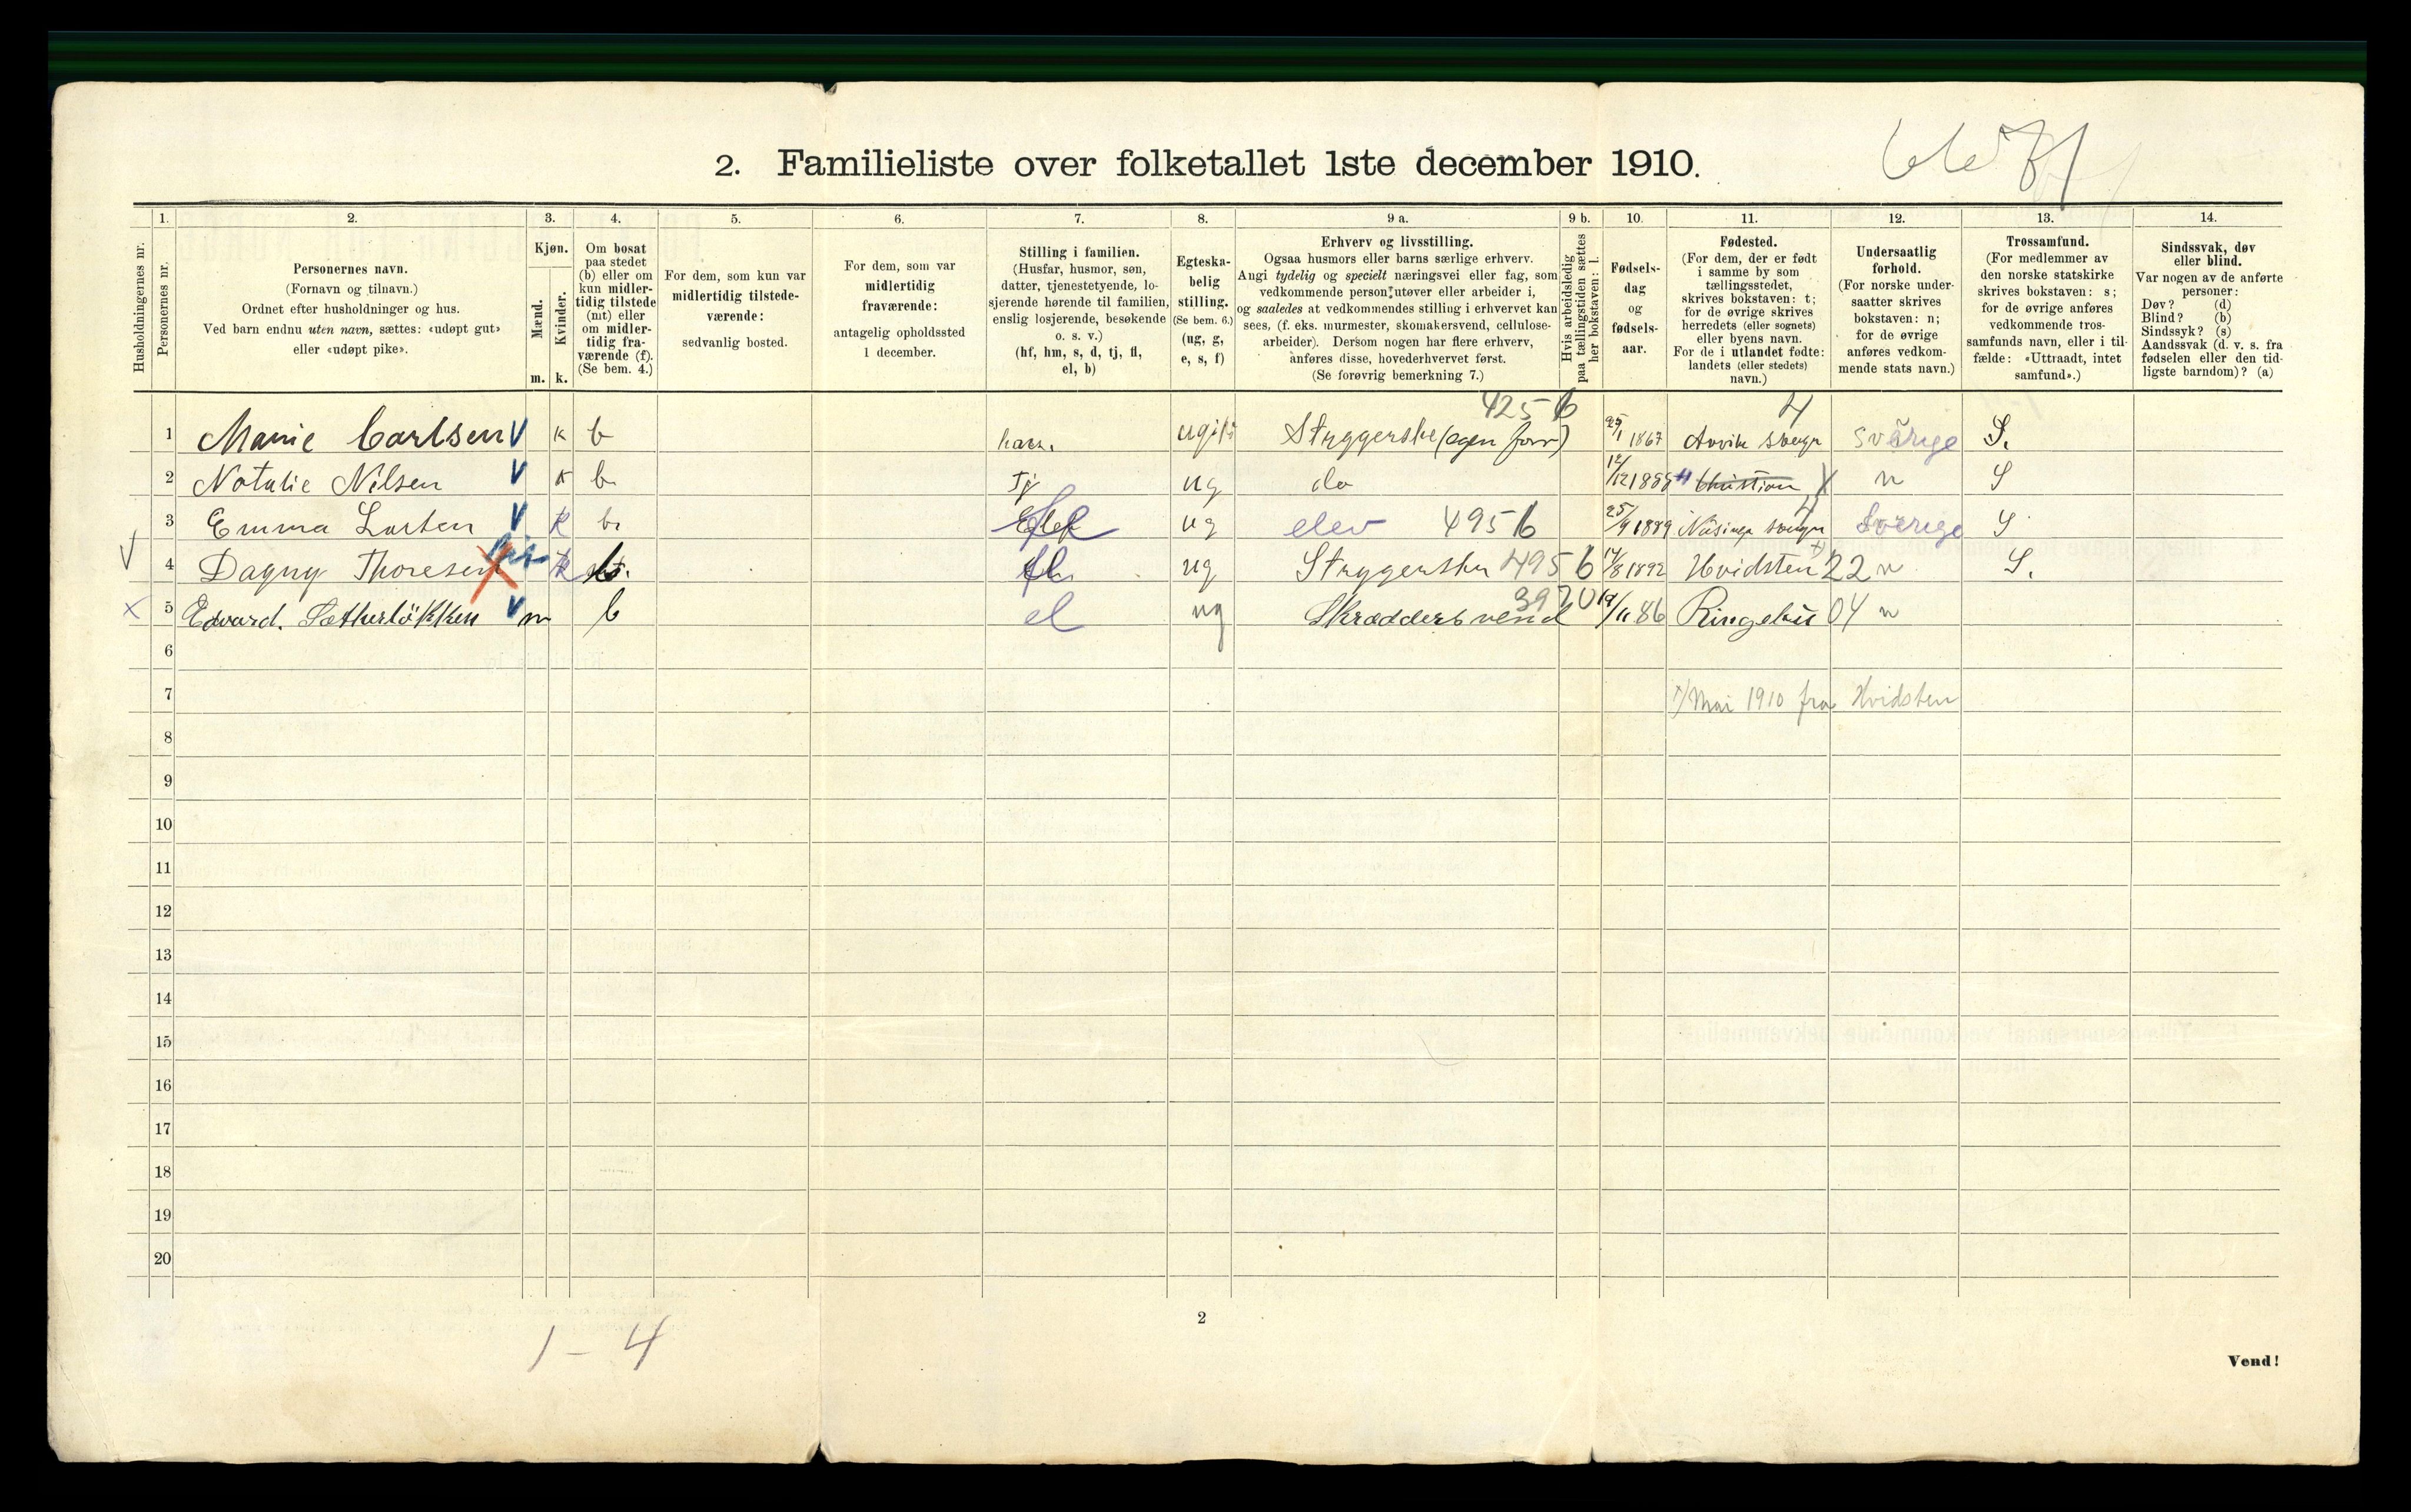 2. Familieliste over folketallet 1ste december 1910.
1. 2. 3. 4. 5. 6. 7. 8. 9 a. 9 b. 10. 11. 12. 13. 14.
Husholdningernes nr.
Personernes nr.
Personernes navn.
(Fornavn og tilnavn.)
Ordnet efter husholdninger og hus.
Ved barn endnu uten navn, sættes: «udøpt gut»
eller «udøpt pike».
Kjøn.
Mænd.
Kvinder.
m. k.
Om bosat
paa stedet
(b) eller om
kun midler-
tidig tilstede
(mt) eller
om midler-
tidig fra-
værende (f).
(Se bem. 4.)
For dem, som kun var
midlertidig tilstede-
værende:
sedvanlig bosted.
For dem, som var
midlertidig
fraværende:
antagelig opholdssted
1 december.
Stilling i familien.
(Husfar, husmor, søn,
datter, tjenestetyende, lo-
sjerende hørende til familien,
enslig losjerende, besøkende
o. s. v.)
(hf, hm, s, d, tj, fl,
el, b)
Egteska-
belig
stilling.
(Se bem. 6.)
(ug, g,
e, s, f)
Erhverv og livsstilling.
Ogsaa husmors eller barns særlige erhverv.
Angi tydelig og specielt næringsvei eller fag, som
vedkommende person utøver eller arbeider i,
og saaledes at vedkommendes stilling i erhvervet kan
sees, (f. eks. murmester, skomakersvend, cellulose-
arbeider). Dersom nogen har flere erhverv,
anføres disse, hovederhvervet først.
(Se forøvrig bemerkning 7.)
Hvis arbeidsledig
paa tællingstiden sættes
her bokstaven: l.
Fødsels-
dag
og
fødsels-
aar.
Fødested.
(For dem, der er født
i samme by som
tællingsstedet,
skrives bokstaven: t;
for de øvrige skrives
herredets (eller sognets)
eller byens navn.
For de i utlandet fødte:
landets (eller stedets)
navn.)
Undersaatlig
forhold.
(For norske under-
saatter skrives
bokstaven: n;
for de øvrige
anføres vedkom-
mende stats navn.)
Trossamfund.
(For medlemmer av
den norske statskirke
skrives bokstaven: s;
for de øvrige anføres
vedkommende tros-
samfunds navn, eller i til-
fælde: «Uttraadt, intet
samfund».)
Sindssvak, døv
eller blind.
Var nogen av de anførte
personer:
Døv? (d)
Blind? (b)
Sindssyk? (s)
Aandssvak (d. v. s. fra
fødselen eller den tid-
ligste barndom)? (a)
4256
1 Marie Carlsen V K b ugift Strygerske (egen forr) 1867 Sverige S.
2 Natalie Nilsen V K b Tj ug do 12/12 n S
3 Emma Larsen V K b. ug elev 4956 25/9 1889 Sverige S
V 4 Dagny Thoresen K b. ug 4956 14/8 1892 Hvidsten 22 n S.
X 5 Edvard. Sætherløkken V m b el ug Skræddersvend 3970 /11 86 Ringebu 04 n
6
7 Mai 1910 fra Hvidsten
8
9
10
11
12
13
14
15
16
17
18
19
20
2
1 – 4
Vend!